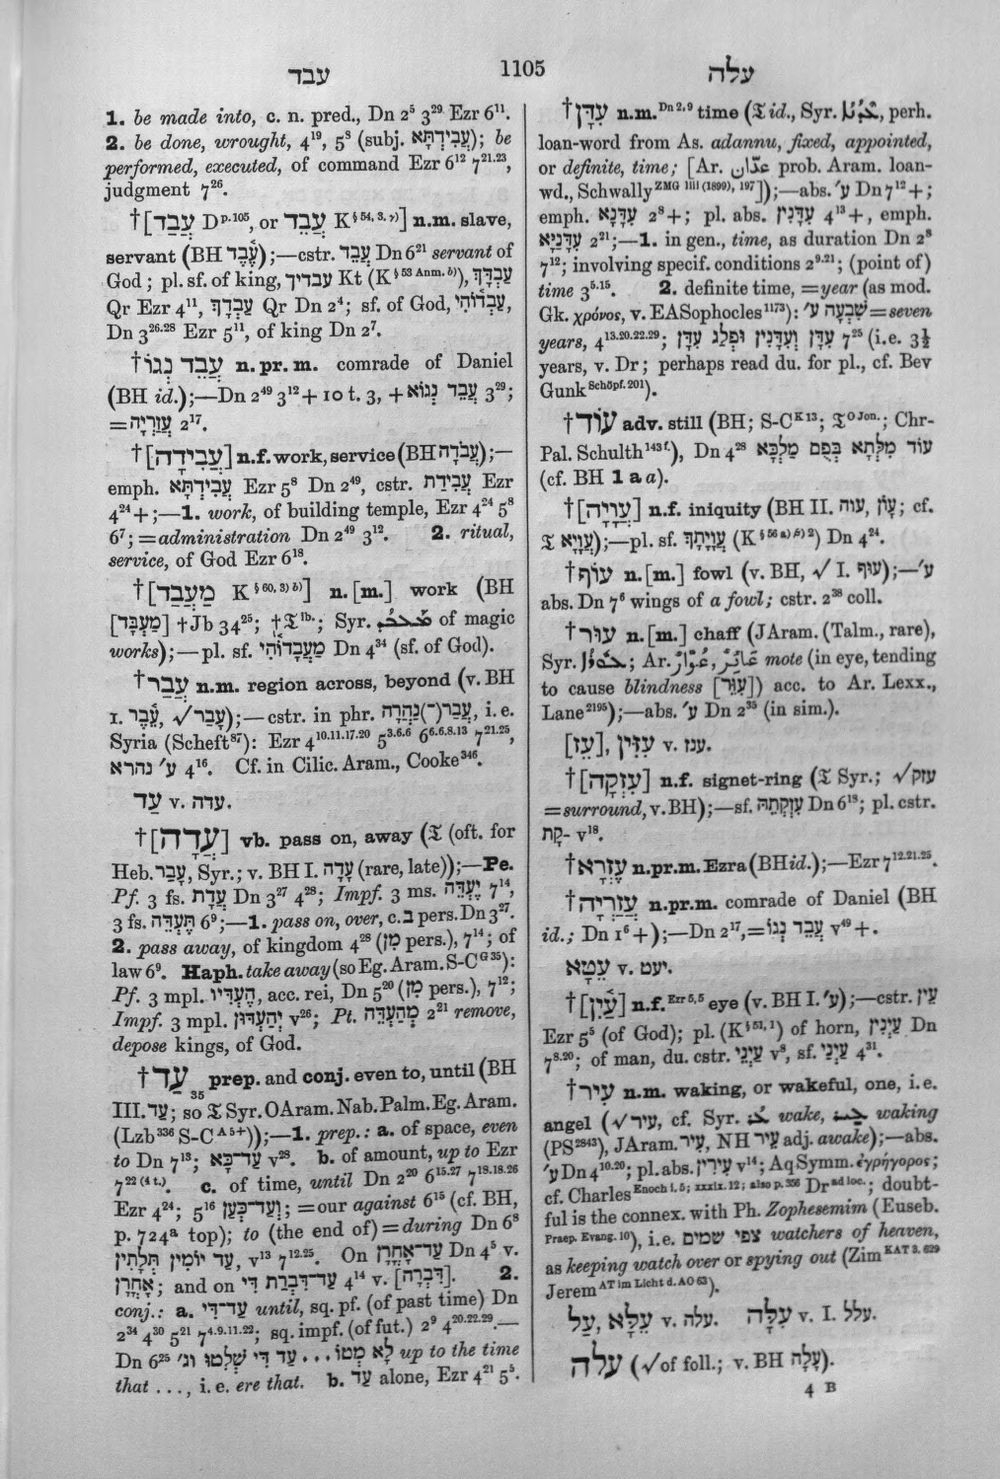 עבד 1105 עלה
1. be made into, c. n. pred., Dn 2⁵ 3²⁹ Ezr 6¹¹.
2. be done, wrought, 4¹⁹, 5⁸ (subj. עֲבִידְתָּא); be
performed, executed, of command Ezr 6¹² 7²¹·²³,
judgment 7²⁶.
†[עֲבַד Dᵖ·¹⁰⁵, or עֲבֵד K§ 54, 3. γ)] n.m. slave,
servant (BH עֶ֫בֶד);—cstr. עֲבֵד Dn 6²¹ servant of
God; pl. sf. of king, עבדיך Kt (K§ 53 Anm. b)), עַבְדָּךְ
Qr Ezr 4¹¹, עַבְדָךְ Qr Dn 2⁴; sf. of God, עַבְדוֹהִי,
Dn 3²⁶·²⁸ Ezr 5¹¹, of king Dn 2⁷.
†עֲבֵד נְגוֹ n. pr. m. comrade of Daniel
(BH id.);—Dn 2⁴⁹ 3¹² + 10 t. 3, + עֲבֵד נְגוֹא 3²⁹;
= עֲזַרְיָה 2¹⁷.
†[עֲבִידָה] n.f. work, service (BH עֲבֹדָה);—
emph. עֲבִידְתָּא Ezr 5⁸ Dn 2⁴⁹, cstr. עֲבִידַת Ezr
4²⁴ +;—1. work, of building temple, Ezr 4²⁴ 5⁸
6⁷; = administration Dn 2⁴⁹ 3¹². 2. ritual,
service, of God Ezr 6¹⁸.
†[מַעֲבַד K§ 60, 3) b)] n. [m.] work (BH
[מַעְבָּד] †Jb 34²⁵; †𝔗 ¹ᵇ·; Syr. of magic
works);—pl. sf. מַעֲבָדוֹהִי Dn 4³⁴ (sf. of God).
†עֲבַר n.m. region across, beyond (v. BH
I. עֵ֫בֶר, √עָבַר);—cstr. in phr. עֲבַר(־)נַהֲרָה, i. e.
Syria (Scheft⁸⁷): Ezr 4¹⁰·¹¹·¹⁷·²⁰ 5³·⁶·⁶ 6⁶·⁶·⁸·¹³ 7²¹·²⁵,
ע׳ נהרא 4¹⁶. Cf. in Cilic. Aram., Cooke³⁴⁶.
עַד v. עדה.
†[עֲדָה] vb. pass on, away (𝔗 (oft. for
Heb. עָבַר, Syr.; v. BH I. עָדָה (rare, late));—Pe.
Pf. 3 fs. עֲדָת Dn 3²⁷ 4²⁸; Impf. 3 ms. יֶעְדֵּה 7¹⁴,
3 fs. תֶּעְדֵּא 6⁹;—1. pass on, over, c. בּ pers. Dn 3²⁷.
2. pass away, of kingdom 4²⁸ (מִן pers.), 7¹⁴; of
law 6⁹. Haph. take away (so Eg. Aram. S-Cᴳ³⁵):
Pf. 3 mpl. הֶעְדִּיו, acc. rei, Dn 5²⁰ (מִן pers.), 7¹²;
Impf. 3 mpl. יְהַעְדּוּן v²⁶; Pt. מְהַעְדֵּה 2²¹ remove,
depose kings, of God.
†עַד 35 prep. and conj. even to, until (BH
III. עַד; so 𝔗 Syr. OAram. Nab. Palm. Eg. Aram.
(Lzb³³⁶ S-Cᴬ⁵⁺));—1. prep.: a. of space, even
to Dn 7¹³; עַד־כָּא v²⁸. b. of amount, up to Ezr
7²² ⁽⁴ ᵗ·⁾. c. of time, until Dn 2²⁰ 6¹⁵·²⁷ 7¹⁸·¹⁸·²⁶
Ezr 4²⁴; 5¹⁶ וְעַד־כְּעַן; = our against 6¹⁵ (cf. BH,
p. 724ᵃ top); to (the end of) = during Dn 6⁸
עַד יוֹמִין תְּלָתִין, v¹³ 7¹²·²⁵. On עַד־אָחֳרֵן Dn 4⁵ v.
אָחֳרָן; and on עַד־דִּבְרַת דִּי 4¹⁴ v. [דִּבְרָה]. 2.
conj.: a. עַד־דִּי until, sq. pf. (of past time) Dn
2³⁴ 4³⁰ 5²¹ 7⁴·⁹·¹¹·²²; sq. impf. (of fut.) 2⁹ 4²⁰·²²·²⁹.—
Dn 6²⁵ לָא מְטוֹ ... עַד דִּי שְׁלִטוּ וג׳ up to the time
that ..., i. e. ere that. b. עַד alone, Ezr 4²¹ 5⁵.
†עִדָּן n.m. Dn 2, 9 time (𝔗 id., Syr. , perh.
loan-word from As. adannu, fixed, appointed,
or definite, time; [Ar. عدّان prob. Aram. loan-
wd., Schwally ZMG liii (1899), 197]);—abs. ע׳ Dn 7¹² +;
emph. עִדָּנָא 2⁸ +; pl. abs. עִדָּנִין 4¹³ +, emph.
עִדָּנַיָּא 2²¹;—1. in gen., time, as duration Dn 2⁸
7¹²; involving specif. conditions 2⁹·²¹; (point of)
time 3⁵·¹⁵. 2. definite time, = year (as mod.
Gk. χρόνος, v. EASophocles¹¹⁷³): שִׁבְעָה ע׳ = seven
years, 4¹³·²⁰·²²·²⁹; עִדָּן וְעִדָּנִין וּפְלַג עִדָּן 7²⁵ (i.e. 3½
years, v. Dr; perhaps read du. for pl., cf. Bev
Gunk Schöpf. 201).
†עוֹד adv. still (BH; S-Cᴷ¹³; 𝔗 O Jon.; Chr-
Pal. Schulth¹⁴³ᶠ·), Dn 4²⁸ עוֹד מִלְּתָא בְּפֻם מַלְכָּא
(cf. BH 1 a a).
†[עֲוָיָה] n.f. iniquity (BH II. עוה, עָוֹן; cf.
𝔗 עֲוָיָא);—pl. sf. עֲוָיָתָךְ (K§ 56 a) β) 2) Dn 4²⁴.
†עוֹף n. [m.] fowl (v. BH, √ I. עוף);—ע׳
abs. Dn 7⁶ wings of a fowl; cstr. 2³⁸ coll.
†עוּר n. [m.] chaff (JAram. (Talm., rare),
Syr. ; Ar. عُوَّار, عَائِر mote (in eye, tending
to cause blindness [עִוֵּר]) acc. to Ar. Lexx.,
Lane²¹⁹⁵);—abs. ע׳ Dn 2³⁵ (in sim.).
[עֵז], עִזִּין v. ענז.
†[עִזְקָה] n.f. signet-ring (𝔗 Syr.; √עזק
= surround, v. BH);—sf. עִזְקְתֵהּ Dn 6¹⁸; pl. cstr.
קָת- v¹⁸.
†עֶזְרָא n.pr.m. Ezra (BH id.);—Ezr 7¹²·²¹·²⁵.
†עֲזַרְיָה n.pr.m. comrade of Daniel (BH
id.; Dn 1⁶ +);—Dn 2¹⁷, = עֲבֵד נְגוֹ v⁴⁹ +.
עֵטָא v. יעט.
†[עַ֫יִן] n.f. Ezr 5, 5 eye (v. BH I. ע׳);—cstr. עֵין
Ezr 5⁵ (of God); pl. (K§ 51, 1) of horn, עַיְנִין Dn
7⁸·²⁰; of man, du. cstr. עַיְנֵי v⁸, sf. עַיְנַי 4³¹.
†עִיר n.m. waking, or wakeful, one, i. e.
angel (√עיר, cf. Syr. wake, waking
(PS²⁸⁴³), JAram. עִיר, NH עֵיר adj. awake);—abs.
ע׳ Dn 4¹⁰·²⁰; pl. abs. עִירִין v¹⁴; Aq Symm. ἐγρήγορος;
cf. Charles Enoch i. 5; xxxix. 12; also p. 356 Dr ad loc.; doubt-
ful is the connex. with Ph. Zophesemim (Euseb.
Praep. Evang. 10), i.e. צפי שמים watchers of heaven,
as keeping watch over or spying out (Zim KAT 3. 629
Jerem AT im Licht d. AO 63).
עַל, עֵלָּא v. עלה. עִלָּה v. I. עלל.
עלה (√ of foll.; v. BH עָלָה).
4 B